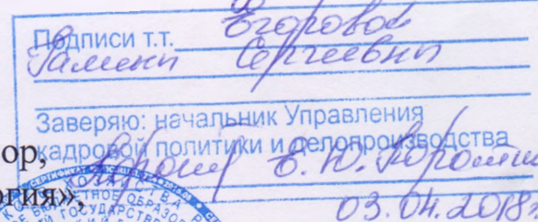 Подписи т.т. Егоровой
Галины Сергеевны
Заверяю: начальник Управления
ор,
кадровой политики и делопроизводства
Е. Ю.
огия»,
03.04.2018г